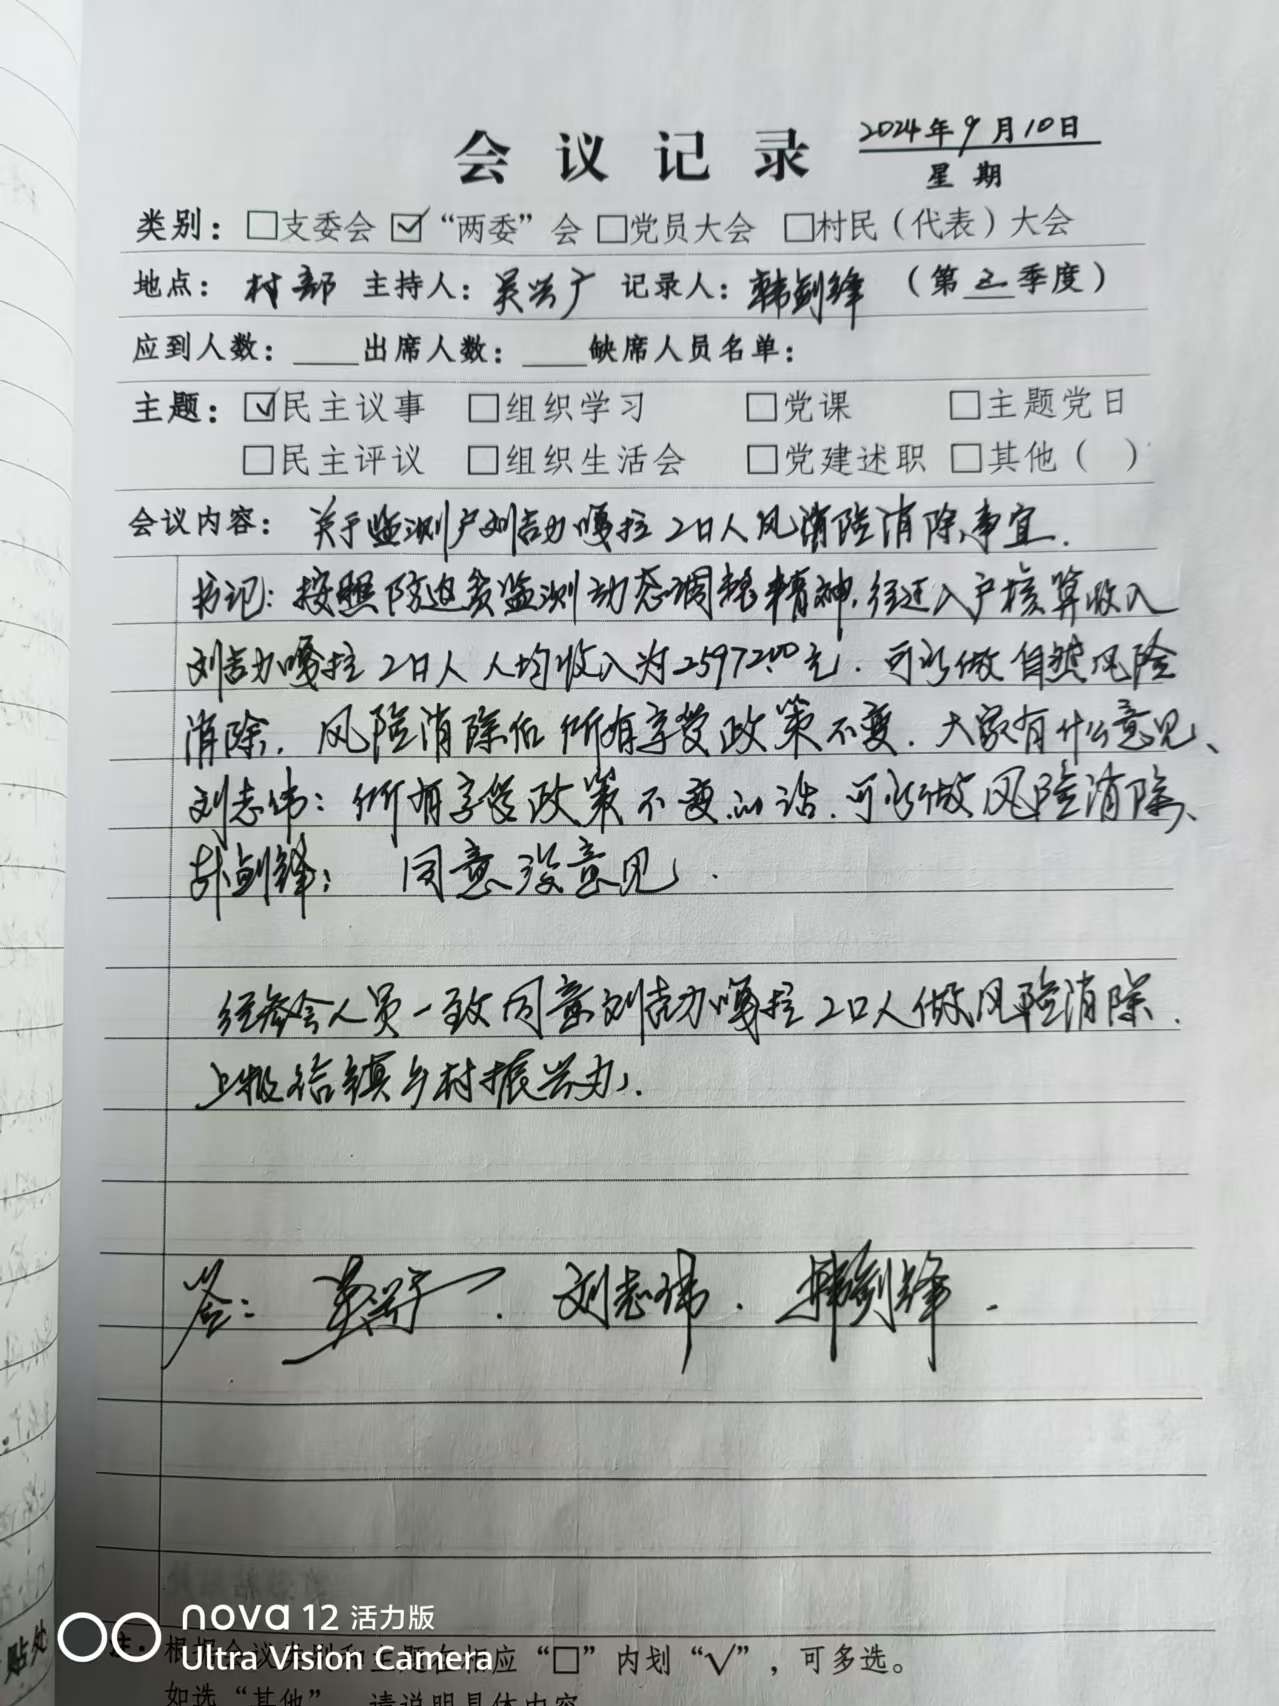 会议记录 2024年9月10日
星期
类别：□支委会 ☑“两委”会 □党员大会 □村民（代表）大会
地点：村部 主持人：吴兴广 记录人：韩剑锋 （第三季度）
应到人数：____出席人数：____缺席人员名单：
主题：☑民主议事 □组织学习 □党课 □主题党日
□民主评议 □组织生活会 □党建述职 □其他（ ）
会议内容：关于监测户刘吉力嘎拉2口人风险消除事宜.
书记：按照防返贫监测动态调整精神，经过入户核算收入
刘吉力嘎拉2口人人均收入为25972.00元.可以做自然风险
消除.风险消除后所有享受政策不变.大家有什么意见、
刘志伟：所有享受政策不变的话.可以做风险消除、
韩剑锋：同意没意见.
经参会人员一致同意刘吉力嘎拉2口人做风险消除.
上报给镇乡村振兴办.
签：吴兴广.刘志伟.韩剑锋.
贴处
nova 12 活力版
Ultra Vision Camera
注：根据会议类别和主题在相应“□”内划“√”，可多选。
如选“其他”，请说明具体内容